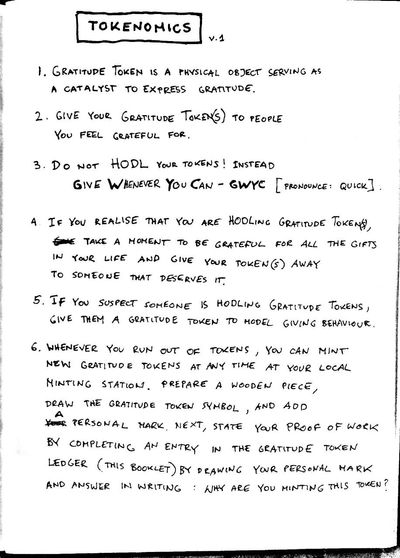 TOKENOMICS
v.1
1. GRATITUDE TOKEN IS A PHYSICAL OBJECT SERVING AS
A CATALYST TO EXPRESS GRATITUDE.
2. GIVE YOUR GRATITUDE TOKEN(S) TO PEOPLE
YOU FEEL GRATEFUL FOR.
3. DO NOT HODL YOUR TOKENS! INSTEAD
GIVE WHENEVER YOU CAN - GWYC [PRONOUNCE: QUICK].
4 IF YOU REALISE THAT YOU ARE HODLING GRATITUDE TOKEN(S),
TAKE A MOMENT TO BE GRATEFUL FOR ALL THE GIFTS
IN YOUR LIFE AND GIVE YOUR TOKEN(S) AWAY
TO SOMEONE THAT DESERVES IT.
5. IF YOU SUSPECT SOMEONE IS HODLING GRATITUDE TOKENS,
GIVE THEM A GRATITUDE TOKEN TO MODEL GIVING BEHAVIOUR.
6. WHENEVER YOU RUN OUT OF TOKENS, YOU CAN MINT
NEW GRATITUDE TOKENS AT ANY TIME AT YOUR LOCAL
MINTING STATION. PREPARE A WOODEN PIECE,
DRAW THE GRATITUDE TOKEN SYMBOL, AND ADD
A PERSONAL MARK. NEXT, STATE YOUR PROOF OF WORK
BY COMPLETING AN ENTRY IN THE GRATITUDE TOKEN
LEDGER (THIS BOOKLET) BY DRAWING YOUR PERSONAL MARK
AND ANSWER IN WRITING: WHY ARE YOU MINTING THIS TOKEN?